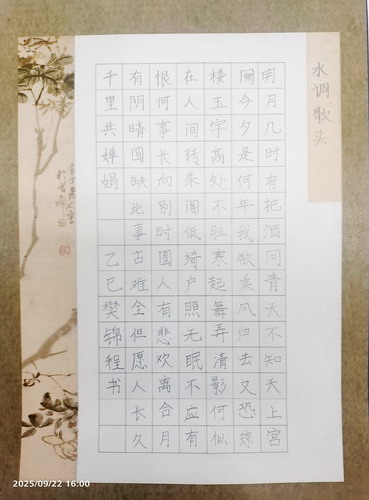 水调歌头
明月几时有把酒问青天不知天上宫
阙今夕是何年我欲乘风归去又恐琼
楼玉宇高处不胜寒起舞弄清影何似
在人间转朱阁低绮户照无眠不应有
恨何事长向别时圆人有悲欢离合月
有阴晴圆缺此事古难全但愿人长久
千里共婵娟 乙巳樊锦程书
2025/09/22 16:00